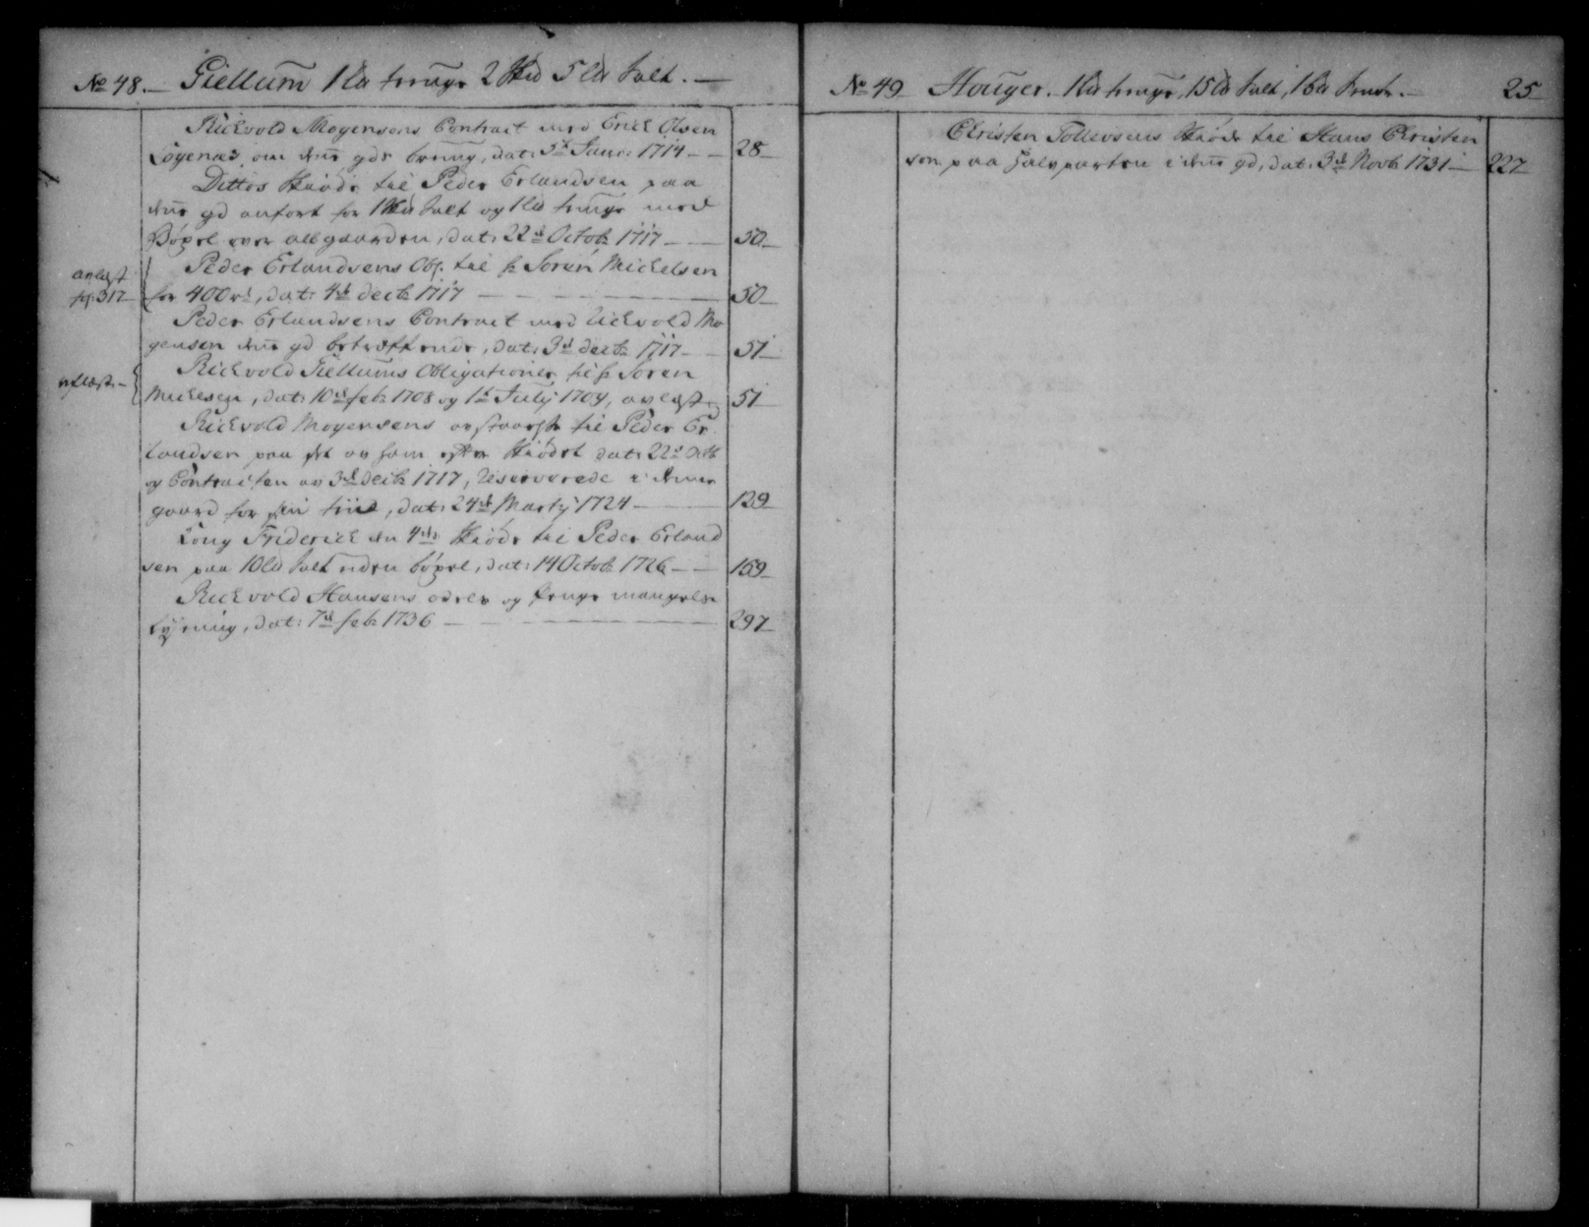 No 48. Giellum 1 Ld tunge 2 Hd 5 Ld salt.
Richvold Mogensens Contract med Erich Olsen
Løgenæs, om denne gds brug, dat: 5t Janr: 1714 28
Dittos Skiøde til Peder Erlandsen paa
denne gd anført for 1 Hd salt og 1 Ld tunge med
Bøxel over all gaarden, dat: 22d Octob: 1717 50
Peder Erlandsens Obl. til hr Søren Michelsen
for 400 rd, dat: 4de decb: 1717 50
avlæst
pp. 317
Peder Erlandsens Contract med Richvold Mo
gensen denne gd betreffende, dat: 3d decb: 1717 51
Richvold Giellums Obligationer til hr Søren
Michelsen, dat: 10de feb: 1708 og 1t July 1709, avlæst 51
aflæst
Richvold Mogensens til Peder Er
landsen paa det som efter Skiødet dat: 22d Octb
og Contracten av 3d decb: 1717, Reserverede i denne
gaard for sin tiid, dat: 24de Marty 1724 129
Kong Friderich den 4des Skiøde til Peder Erland
sen paa 10 Ld salt uden bøxel, dat: 14 Octob: 1726 159
Richvold Hansens odels og penge mangels
lysning, dat: 7d feb: 1736 297
No 49 Houger. 1 Ld tunge, 15 Ld salt, 1 Bd 25
Christen Tollevsens Skiøde til Hans Christen
sen paa halvparten i denne gd, dat: 3d Novb: 1731 227